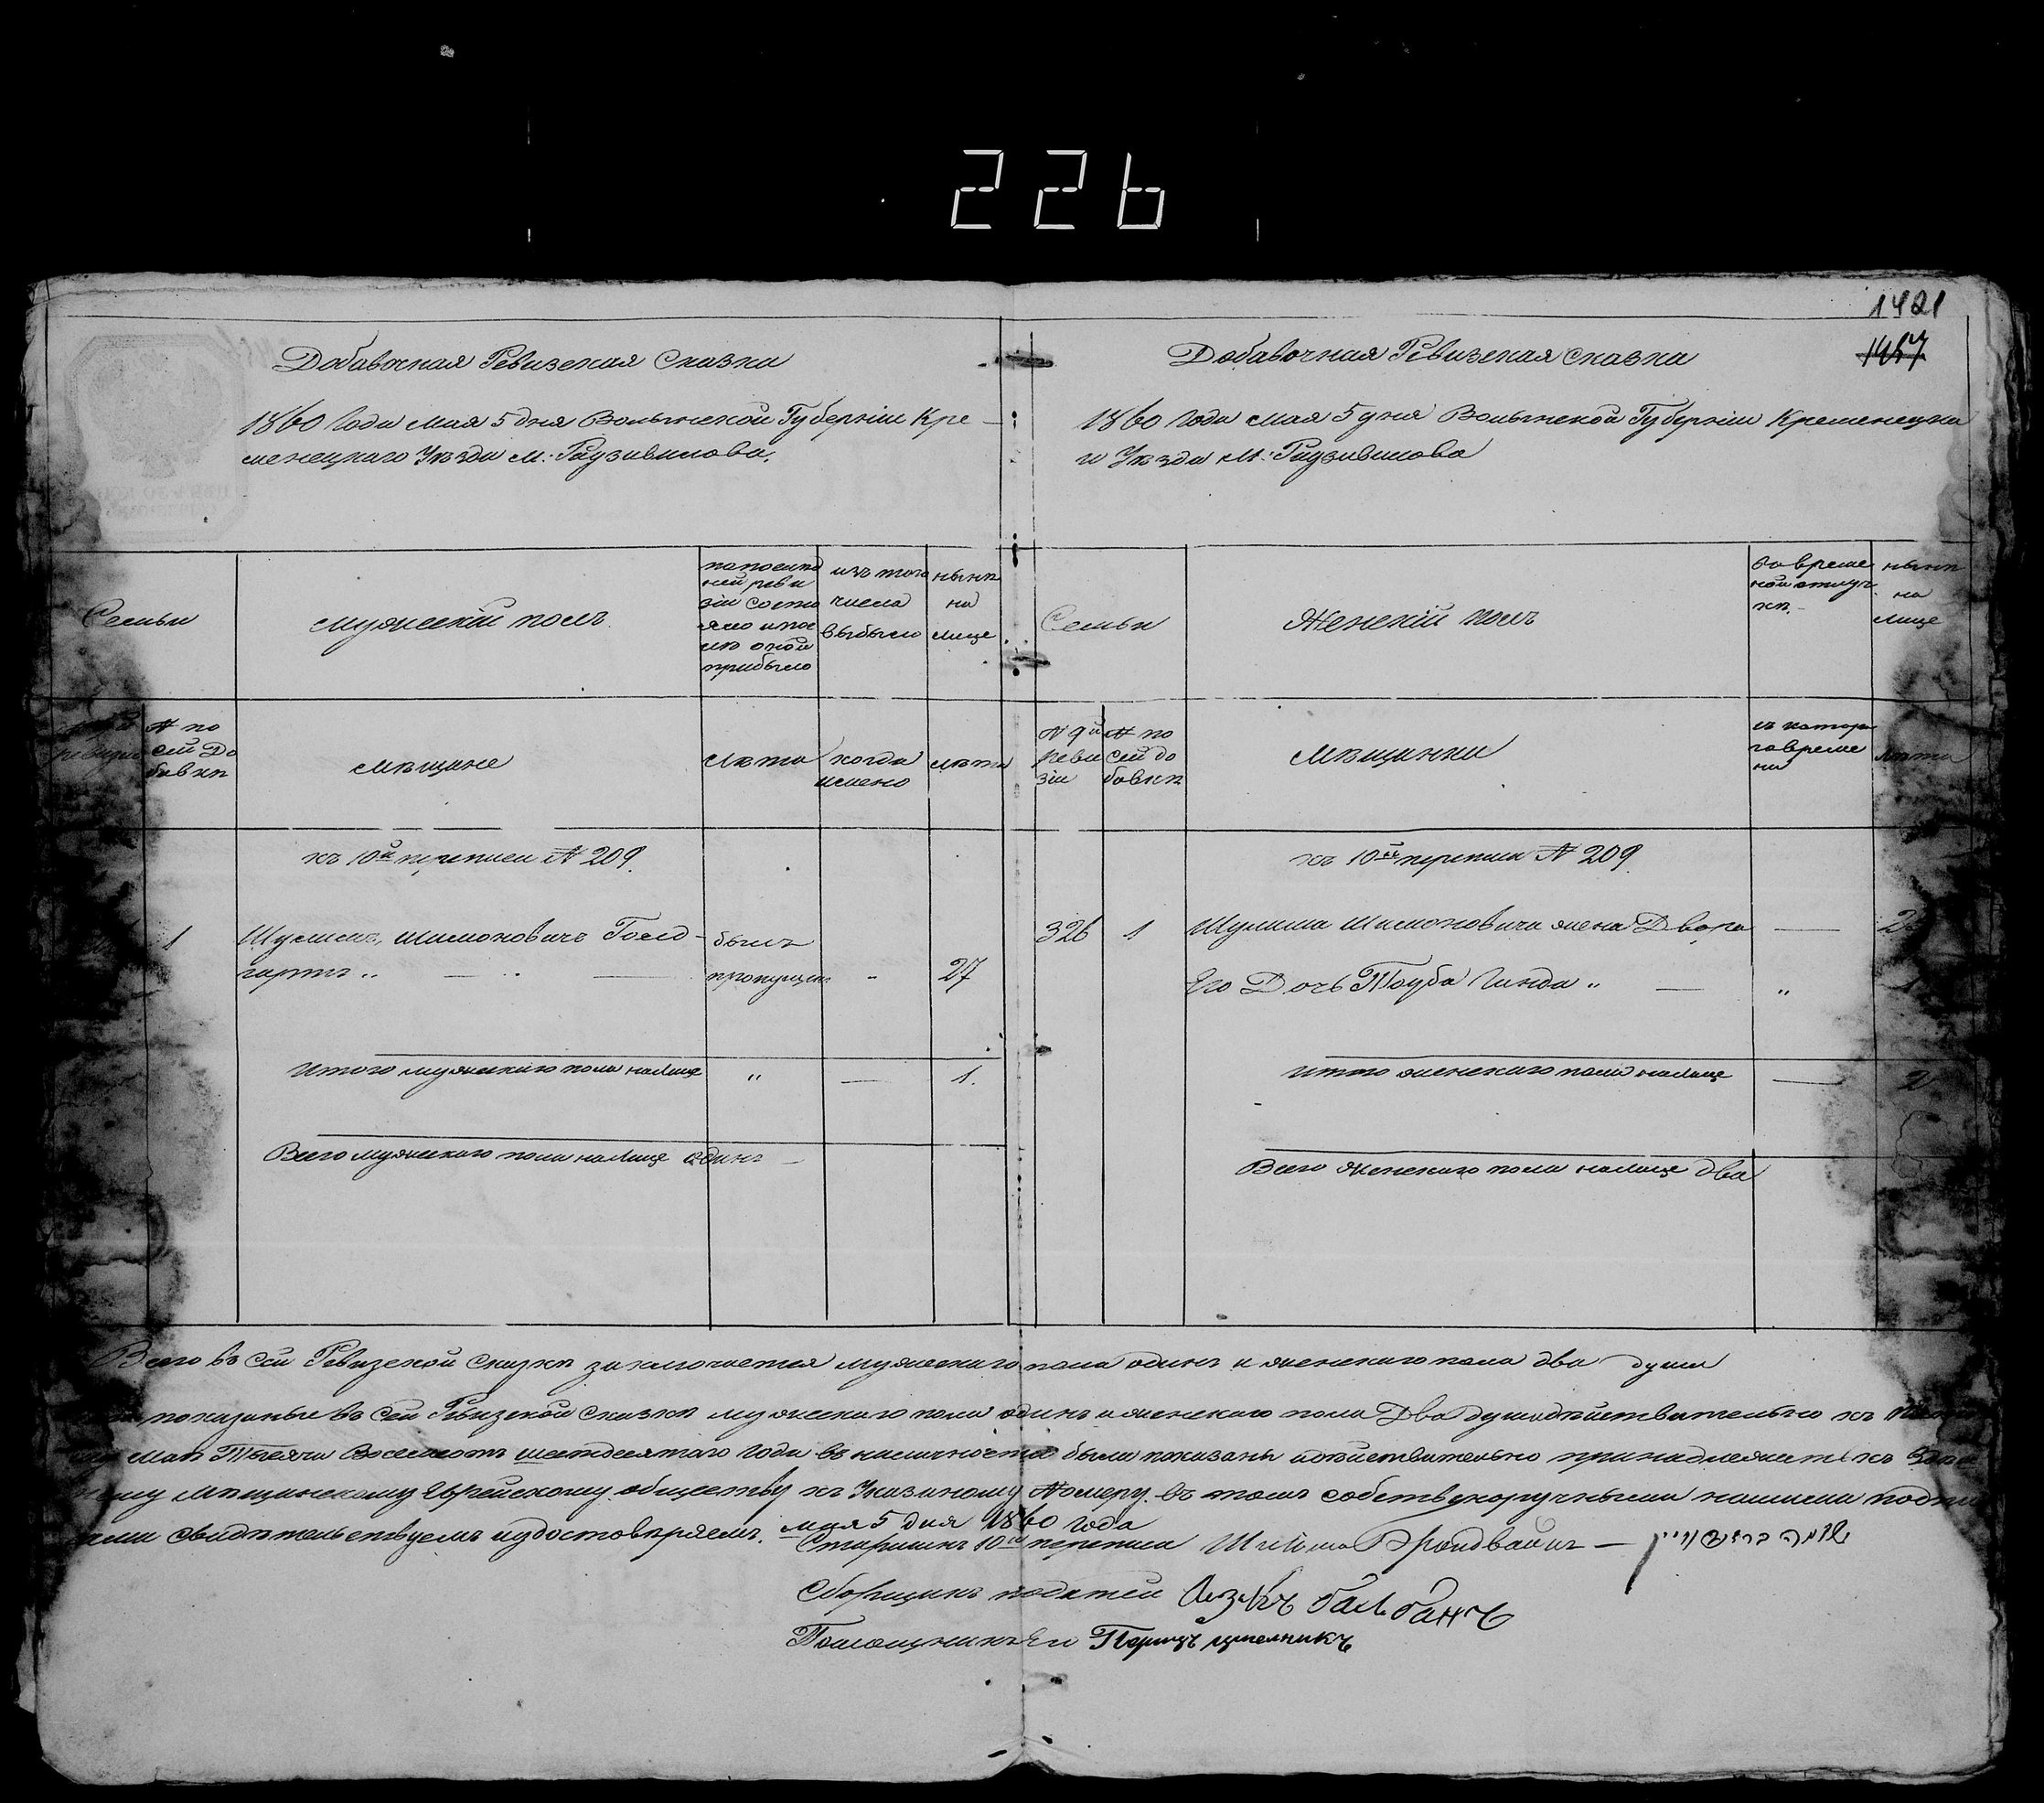 226
1421
1457
Добавочная Ревизская Сказка
1860 Года Мая 5 дня Волынской Губерніи Кре-
менецкаго Уѣзда М. Радзивилова.
Семьи
мужескій полъ
по послѣд
ней реви
зіи состо
яло и пос
лѣ оной
прибыло
изъ того
числа
выбыло
нынѣ
на
лице
ревизіи
№ по
сей До
бавкѣ
мѣщане
лѣта
когда
имено
лѣта
къ 10й переписи № 209.
1 Шулимъ Шимоновичъ Голд-
гартъ
былъ
пропущенъ
27
Итого мужескаго пола налице 1.
Всего мужескаго пола налице одинъ
Добавочная Ревизская Сказка
1860 Года Мая 5 дня Волынской Губерніи Кременецка
го Уѣзда М. Радзивилова
Семьи
Женскій полъ
во време
ной отлуч
кѣ
нынѣ
на
лице
№ 9й
Реви
зіи
№ по
сей до
бавкѣ
Мѣщанки
съ котора
го време
ни
лѣта
къ 10й переписи № 209.
326 1 Шулима Шимоновича жена Двора
Его Дочь Тауба Гинда
Итого женскаго пола налице 2
Всего женскаго пола налице два
Всего въ сей Ревизской Сказкѣ заключается мужескаго пола одинъ и женскаго пола два души
показаные въ сей Ревизской сказкѣ мужескаго пола одинъ и женскаго пола Два душъ дѣйствительно къ
Мая Тысяча Восемсотъ шестдесятаго Года въ наличности были показаны и дѣйствительно принадлежатъ къ
мѣщанскому Еврейскому обществу къ Указаному Номеру. въ томъ собственоручными нашими подпи
сями свидѣтельствуемъ и удостовѣряемъ. мая 5 дня 1860 года
Старшинъ 10й переписи Шлёма Брондвайнъ —
Сборщикъ податей Айзикъ Балбанъ
Помощникъ его Перецъ